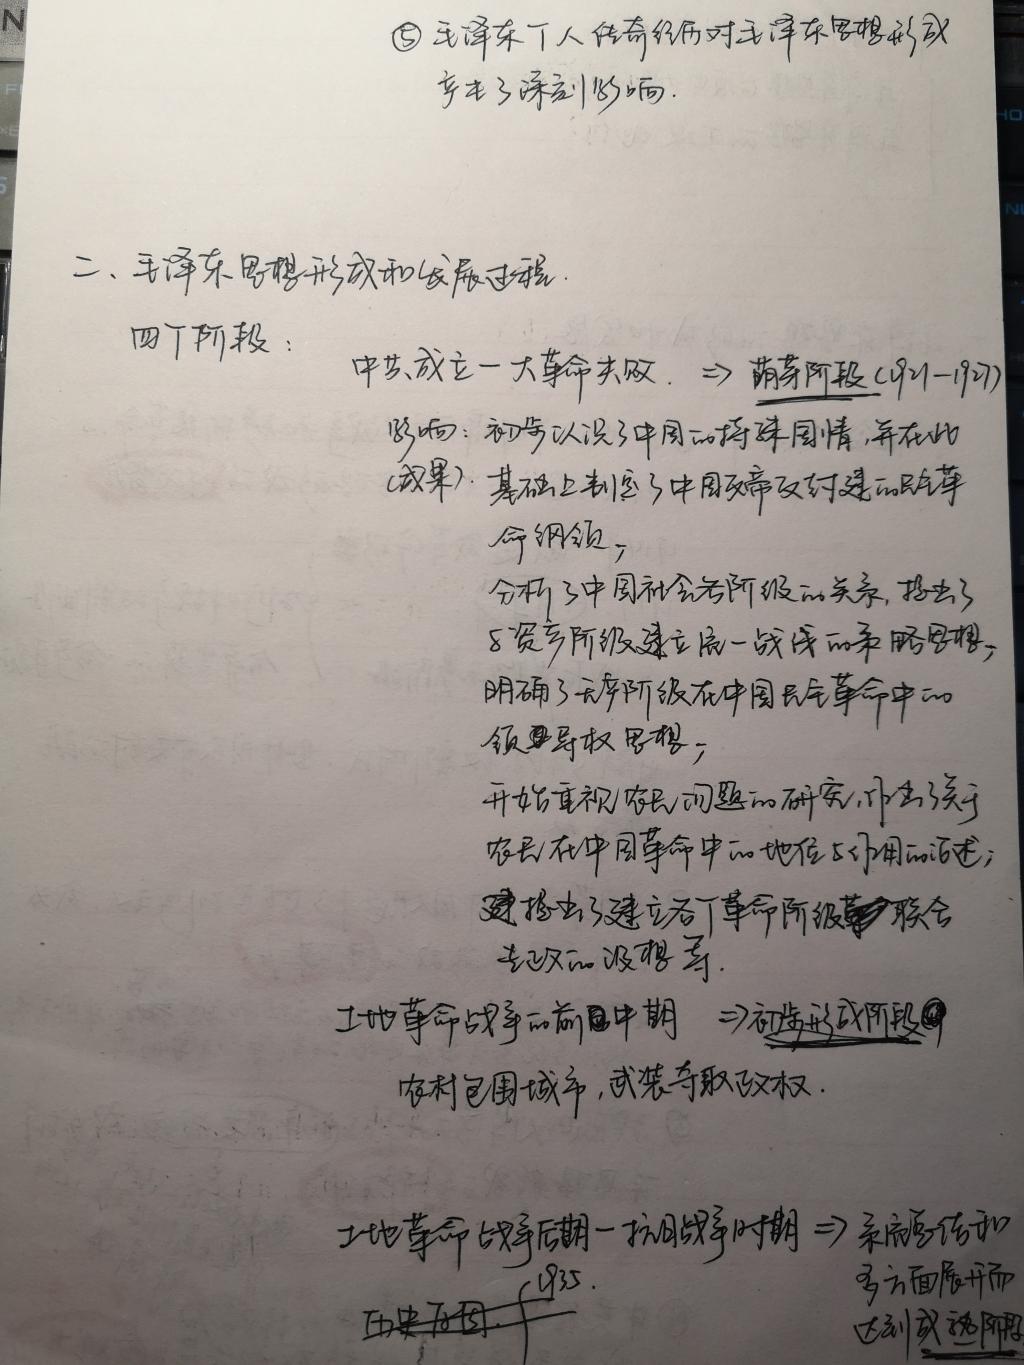 ⑤ 毛泽东个人传奇经历对毛泽东思想形成
产生了深刻影响.
二、毛泽东思想形成和发展过程.
四个阶段:
中共成立—大革命失败. ⇒ 萌芽阶段(1921—1927)
影响: 初步认识了中国的特殊国情,并在此
(成果). 基础上制定了中国反帝反封建的民主革
命纲领;
分析了中国社会各阶级的关系,提出了
与资产阶级建立统一战线的策略思想;
明确了无产阶级在中国民主革命中的
领导权思想;
开始重视农民问题的研究,作出了关于
农民在中国革命中的地位与作用的论述;
提出了建立各个革命阶级联合
专政的设想等.
土地革命战争的前中期 ⇒初步形成阶段
农村包围城市,武装夺取政权.
土地革命战争后期—抗日战争时期 ⇒ 系统总结和
多方面展开而
达到成熟阶段
1935.
历史原因.